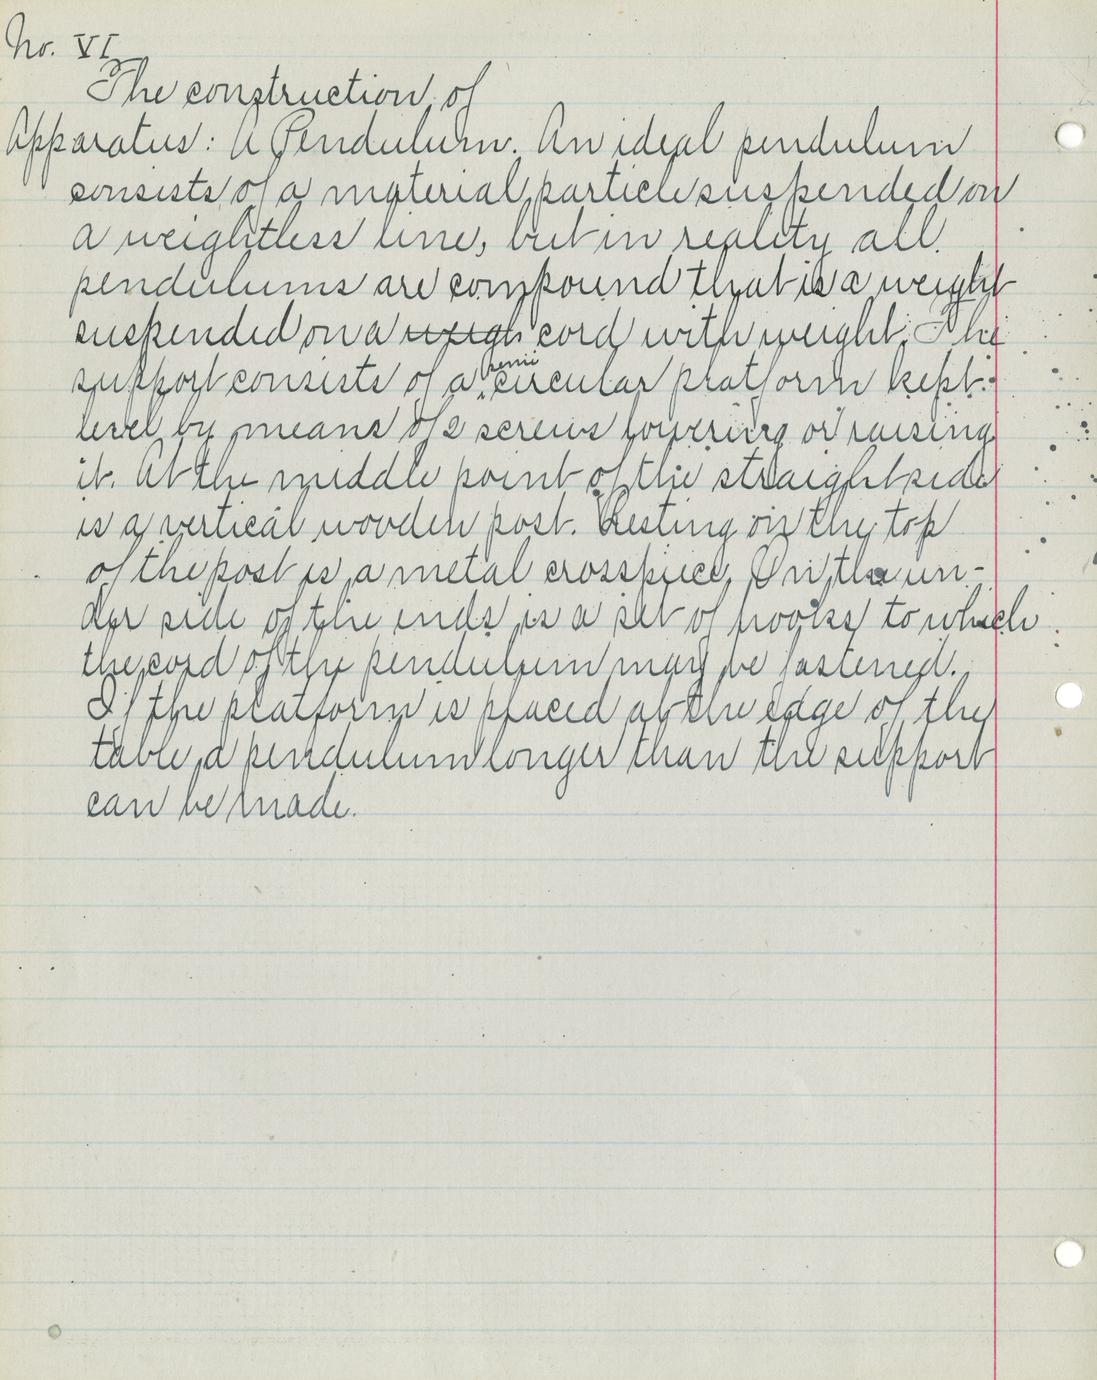 No. VI
The construction of
Apparatus: A Pendulum. An ideal pendulum
consists of a material particle suspended on
a weightless line, but in reality all
pendulums are compound that is a weight
suspended on a weigh cord with weight. The
support consists of a semi circular platform kept
level by means of 2 screws lowering or raising
it. At the middle point of the straight side
is a vertical wooden post. Resting on the top
of the post is a metal crosspiece. On the un-
der side of the ends is a set of hooks to which
the cord of the pendulum may be fastened.
If the platform is placed at the edge of the
table a pendulum longer than the support
can be made.